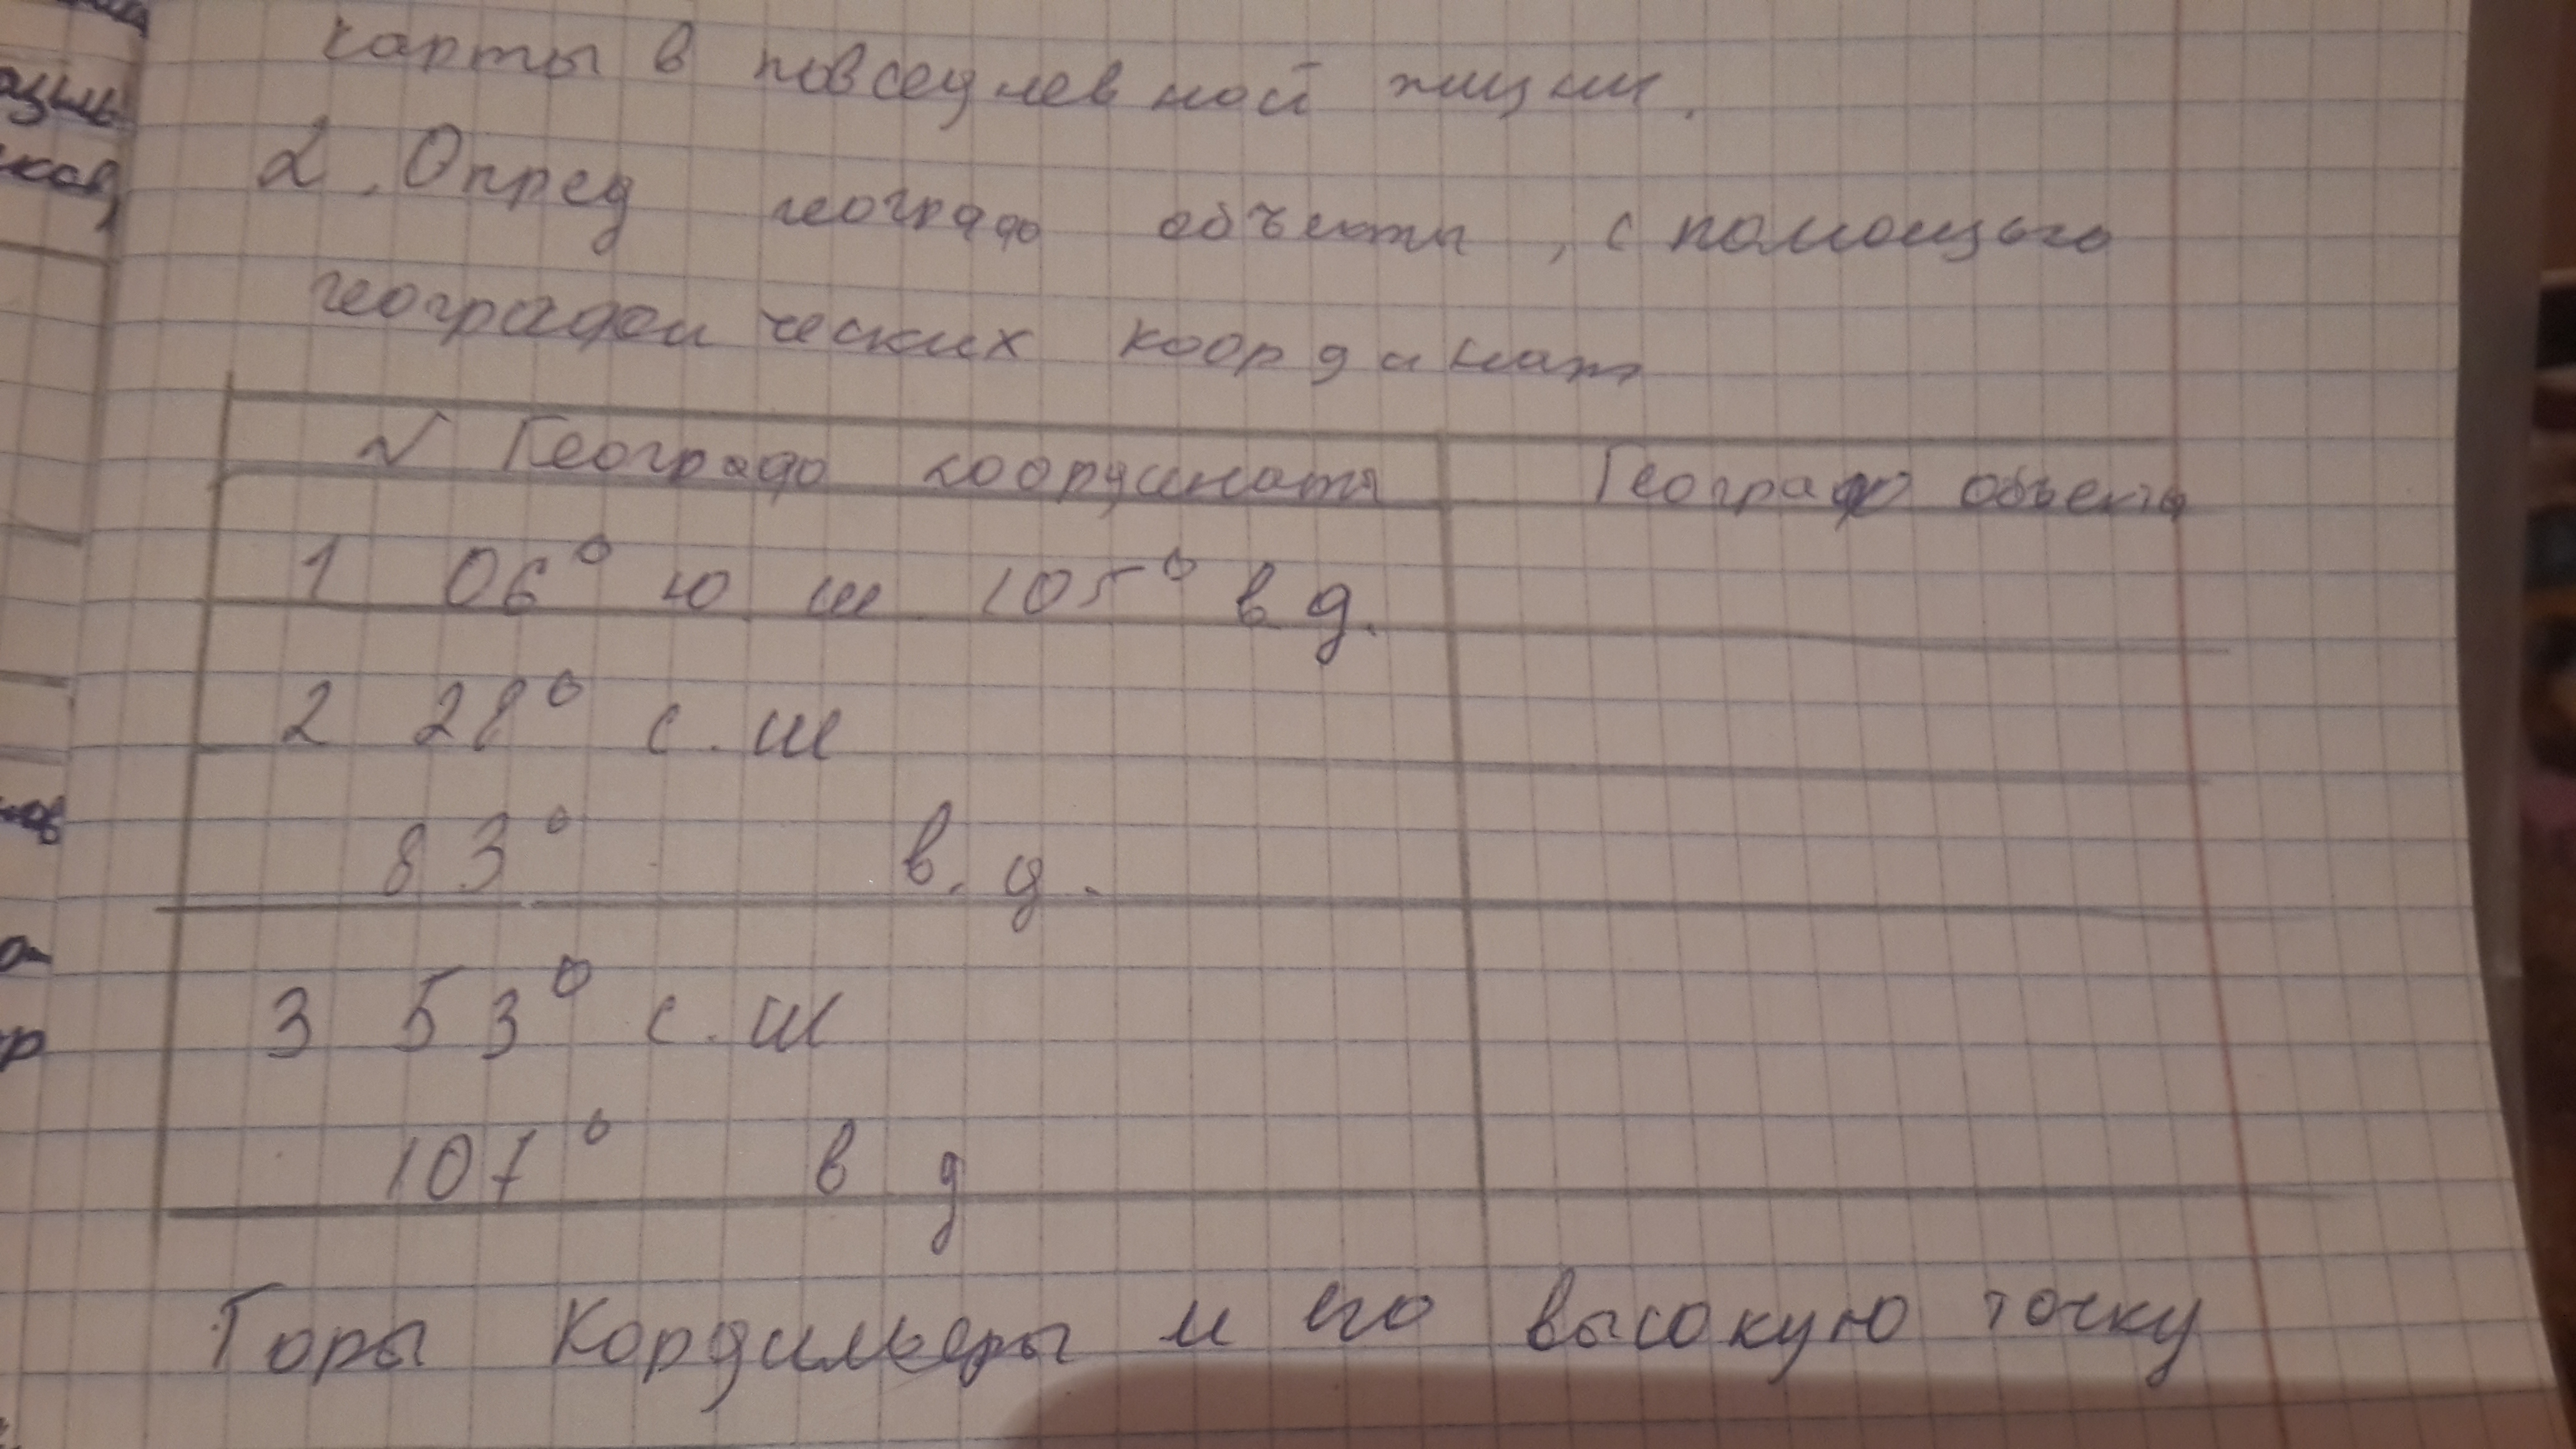 карты в повседневной жизни.
2. Опред географ объекты, с помощью
географических координат
№ Географ координаты Географ объекты
1 06° ю ш 105° в д.
2 28° с.ш
83° в.д.
3 53° с.ш
107° в д
Горы Кордильеры и его высокую точку